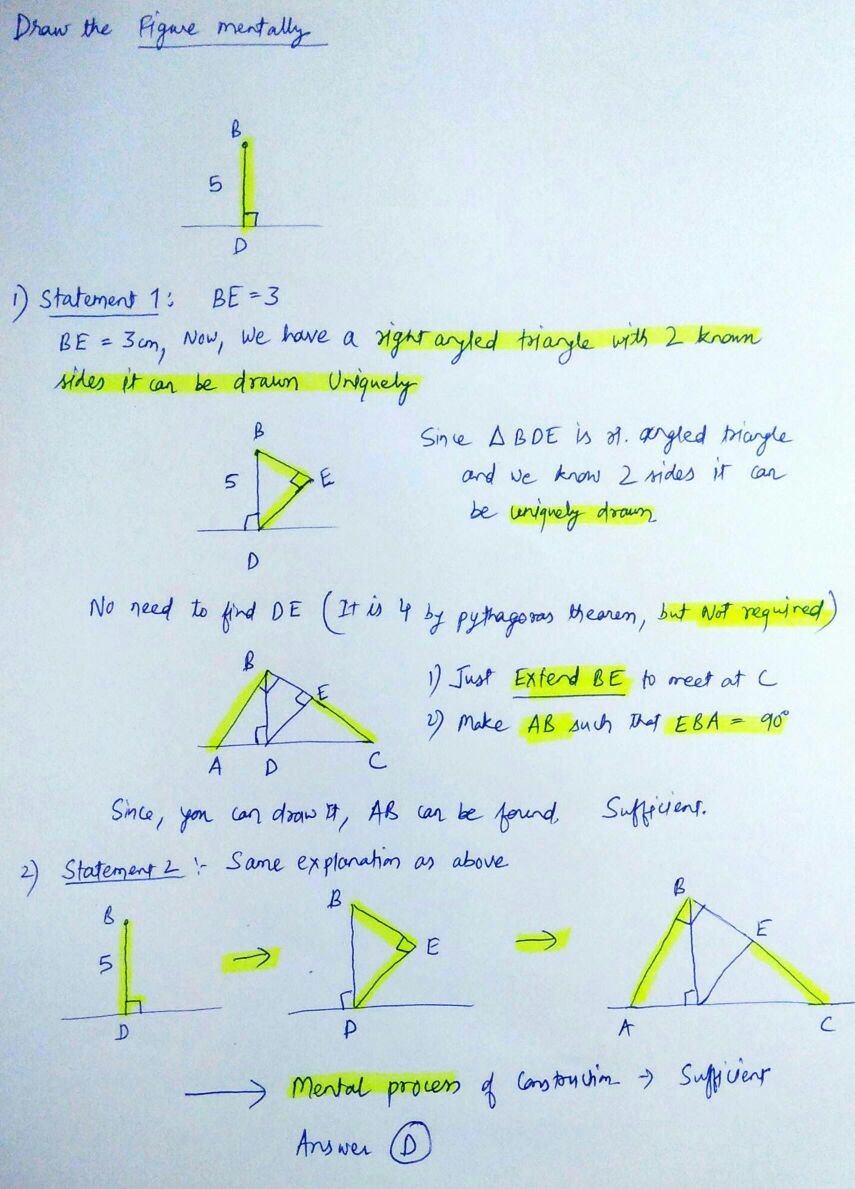 Draw the Figure mentally
B
5
D
1) Statement 1: BE = 3
BE = 3 cm, Now, we have a right angled triangle with 2 known
sides it can be drawn Uniquely
B
5
E
D
Since Δ BDE is rt. angled triangle
and we know 2 sides it can
be uniquely drawn
No need to find DE (It is 4 by pythagoras theorem, but Not required)
B
E
A D C
1) Just Extend BE to meet at C
2) Make AB such that EBA = 90°
Since, you can draw it, AB can be found, Sufficient.
2) Statement 2 :- Same explanation as above
B
5
D
→
B
E
D
→
B
E
A C
→ Mental process of Construction → Sufficient
Answer D